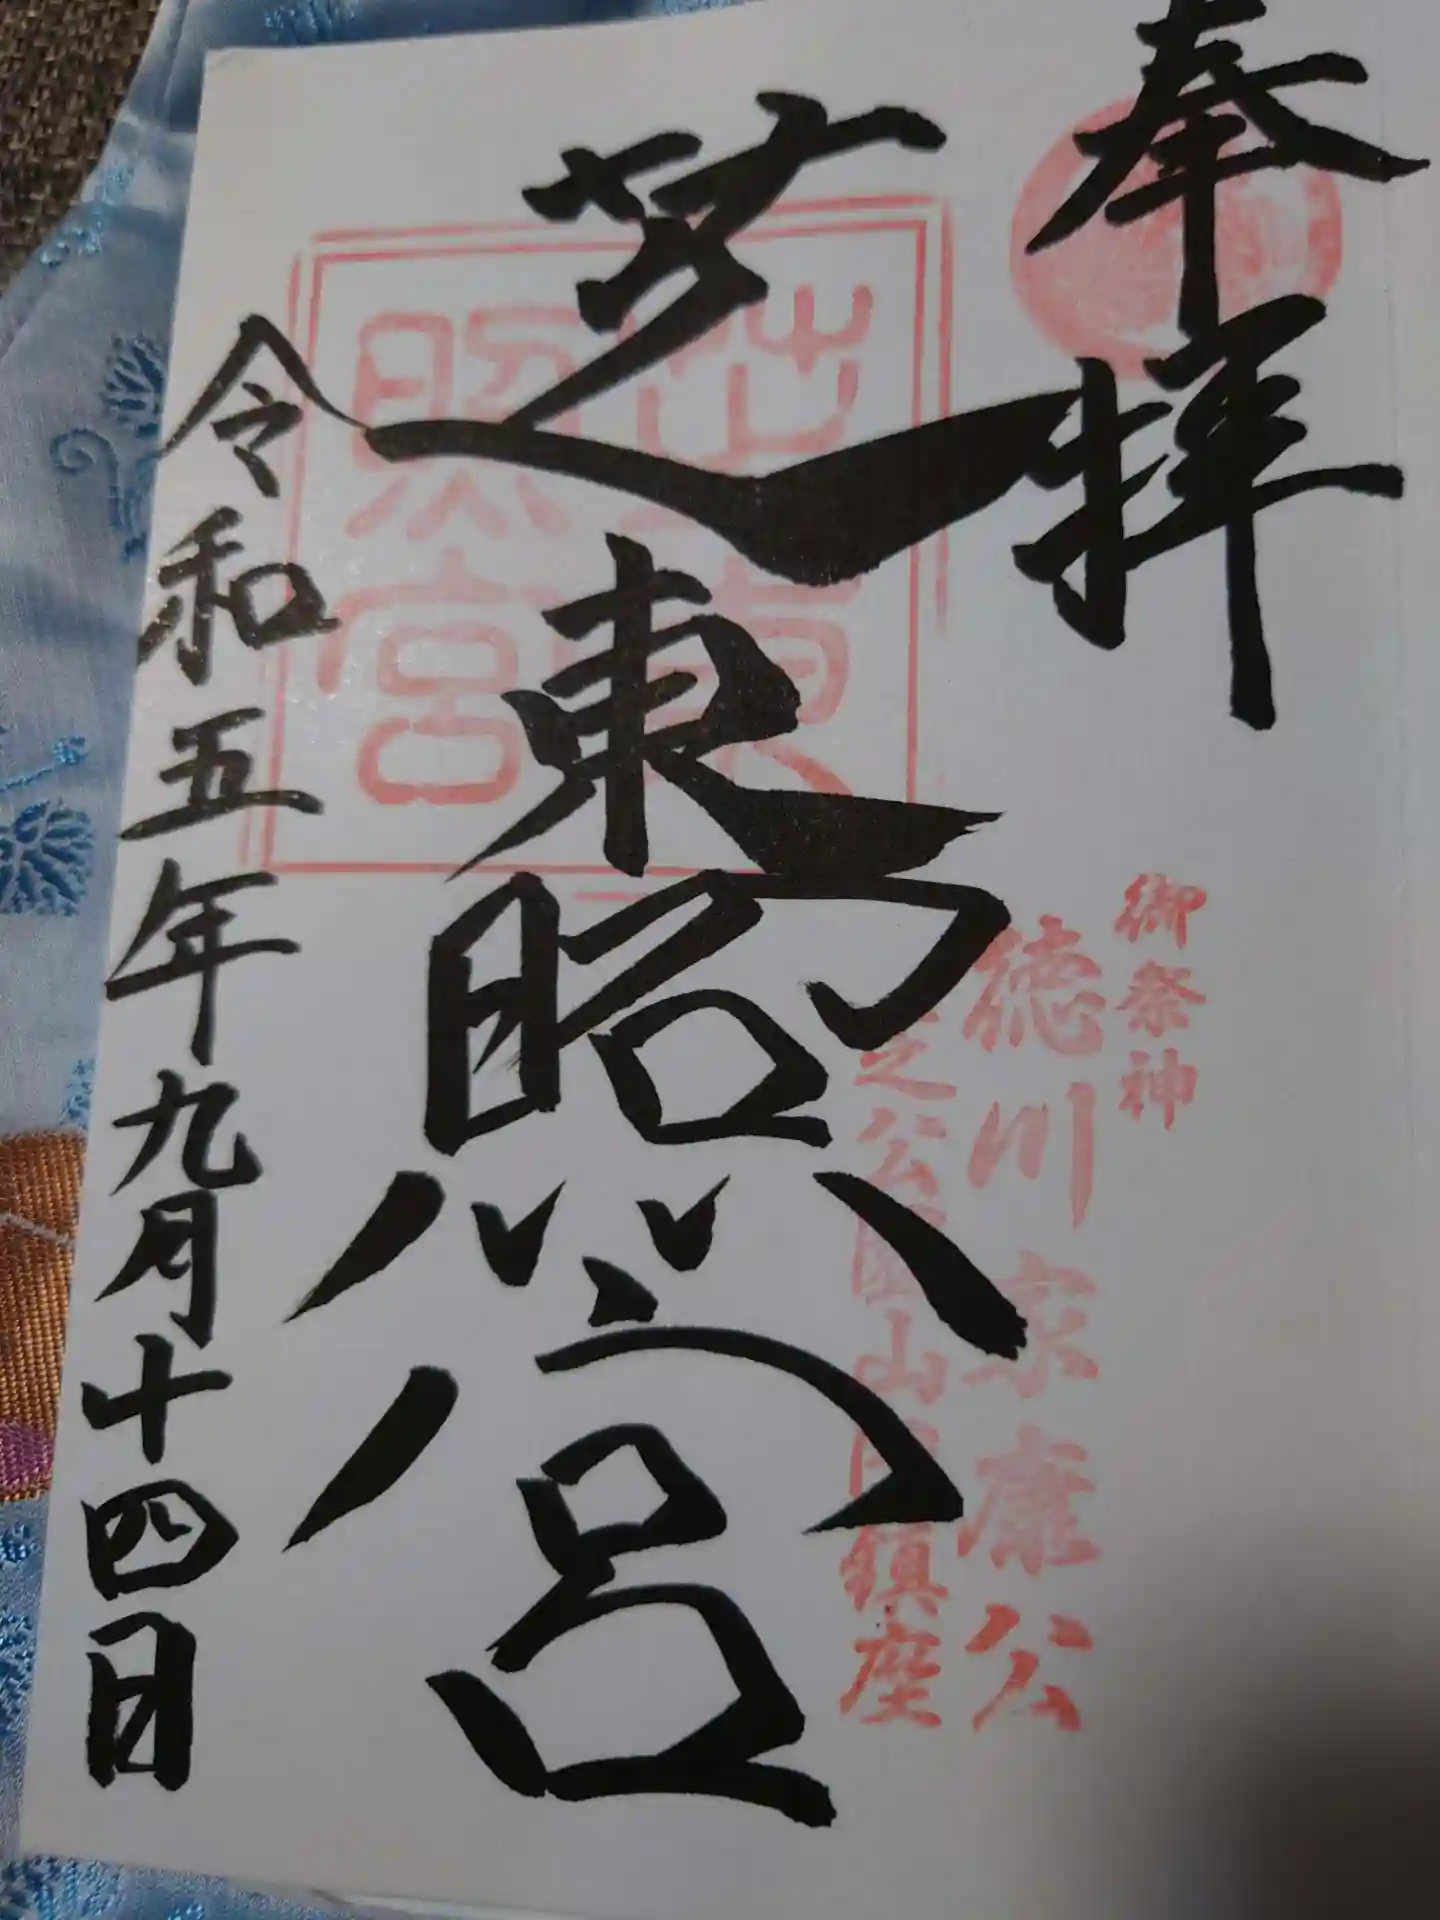 奉拝
御祭神
徳川家康公
芝公園山内鎮座
芝東照宮
芝東照宮
令和五年九月十四日